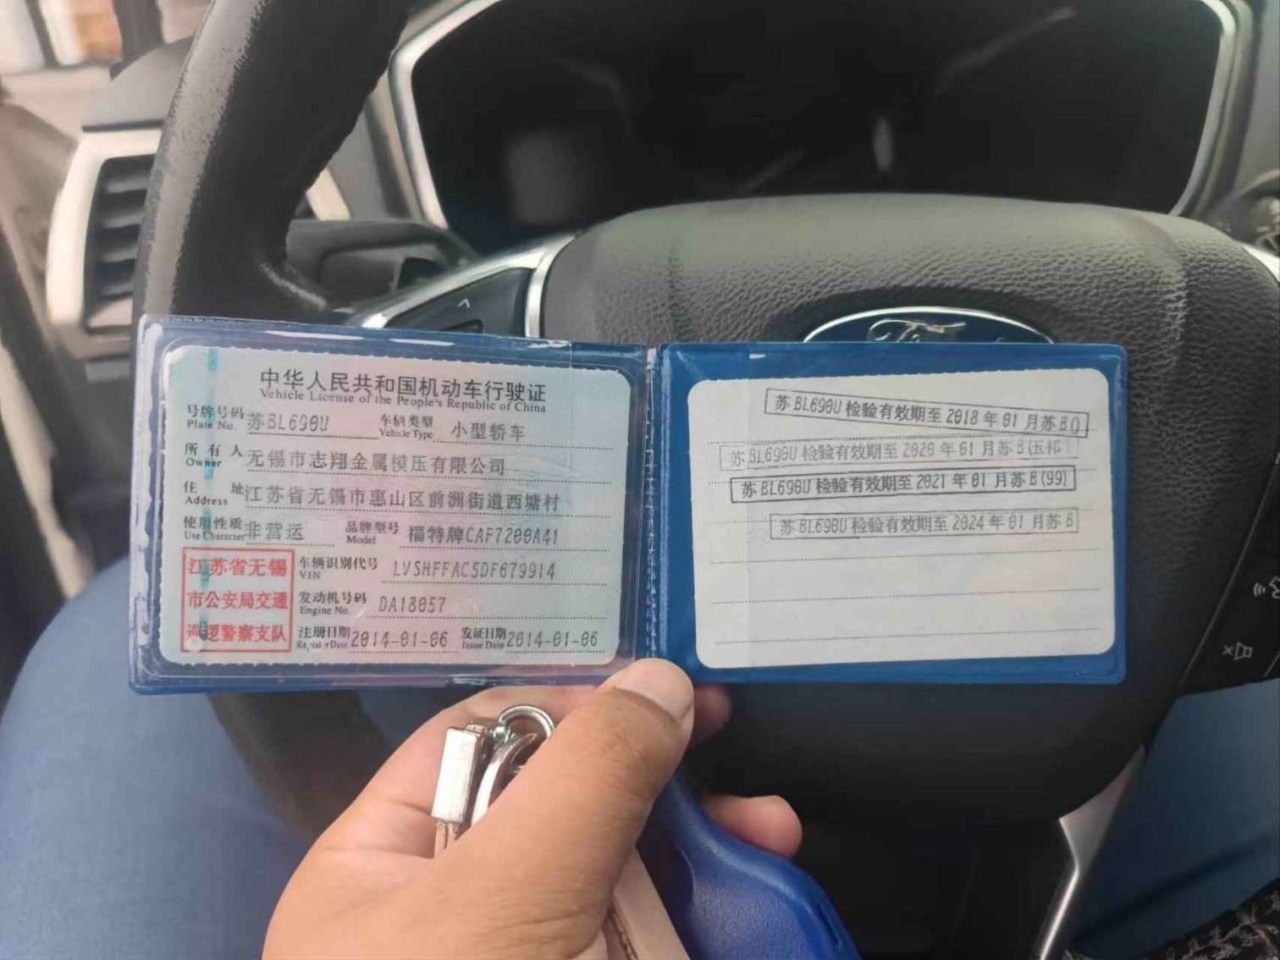 中华人民共和国机动车行驶证
Vehicle License of the People's Republic of China
号牌号码 苏BL690U 车辆类型 小型轿车
Plate No. Vehicle Type
所有人 无锡市志翔金属模压有限公司
Owner
住址 江苏省无锡市惠山区前洲街道西塘村
Address
使用性质 非营运 品牌型号 福特牌CAF7200A41
Use Character Model
江苏省无锡
市公安局交通
巡逻警察支队
车辆识别代号 LVSHFFAC5DF679914
VIN
发动机号码 DA18057
Engine No.
注册日期 2014-01-06 发证日期 2014-01-06
Register Date Issue Date
苏BL690U 检验有效期至 2018 年 01 月苏B()
苏BL690U 检验有效期至 2020 年 01 月苏B(玉祁)
苏BL690U 检验有效期至 2021 年 01 月苏B(99)
苏BL690U 检验有效期至 2024 年 01 月苏B
Ford